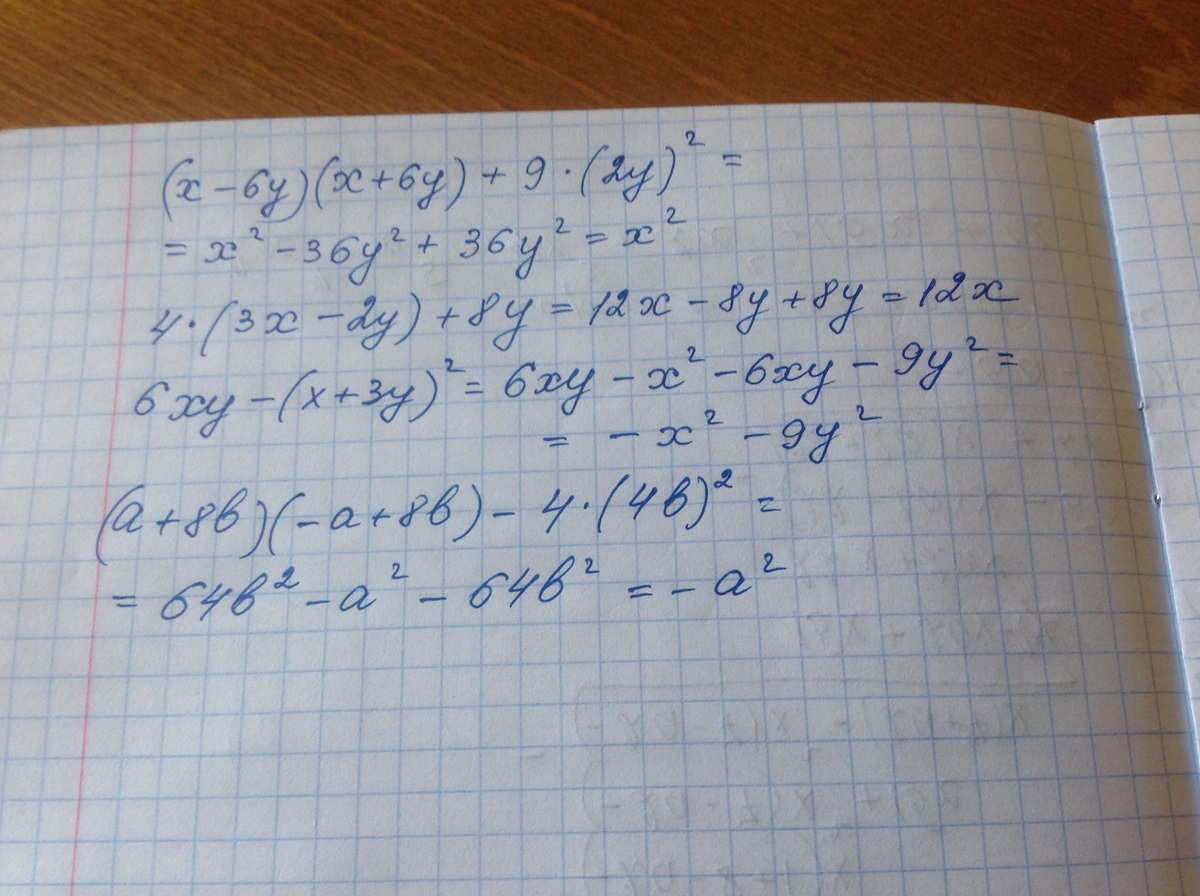 (x-6y)(x+6y)+9·(2y)²=
=x²-36y²+36y²=x²
4·(3x-2y)+8y=12x-8y+8y=12x
6xy-(x+3y)²=6xy-x²-6xy-9y²=
=-x²-9y²
(a+8b)(-a+8b)-4·(4b)²=
=64b²-a²-64b²=-a²